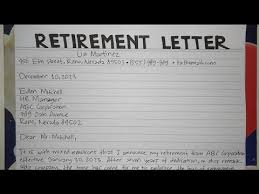 RETIREMENT LETTER
Lia Martinez
456 Elm Street, Reno, Nevada 89503 •
December 10, 2023
Edan Mitchell
HR Manager
ABC Corporation
789 Oak Avenue
Reno, Nevada 89502
Dear Mr. Mitchell,
It is with mixed emotions that I announce my retirement from ABC Corporation
effective January 30, 2025. After seven years of dedication, in this
company, the time has come for me to